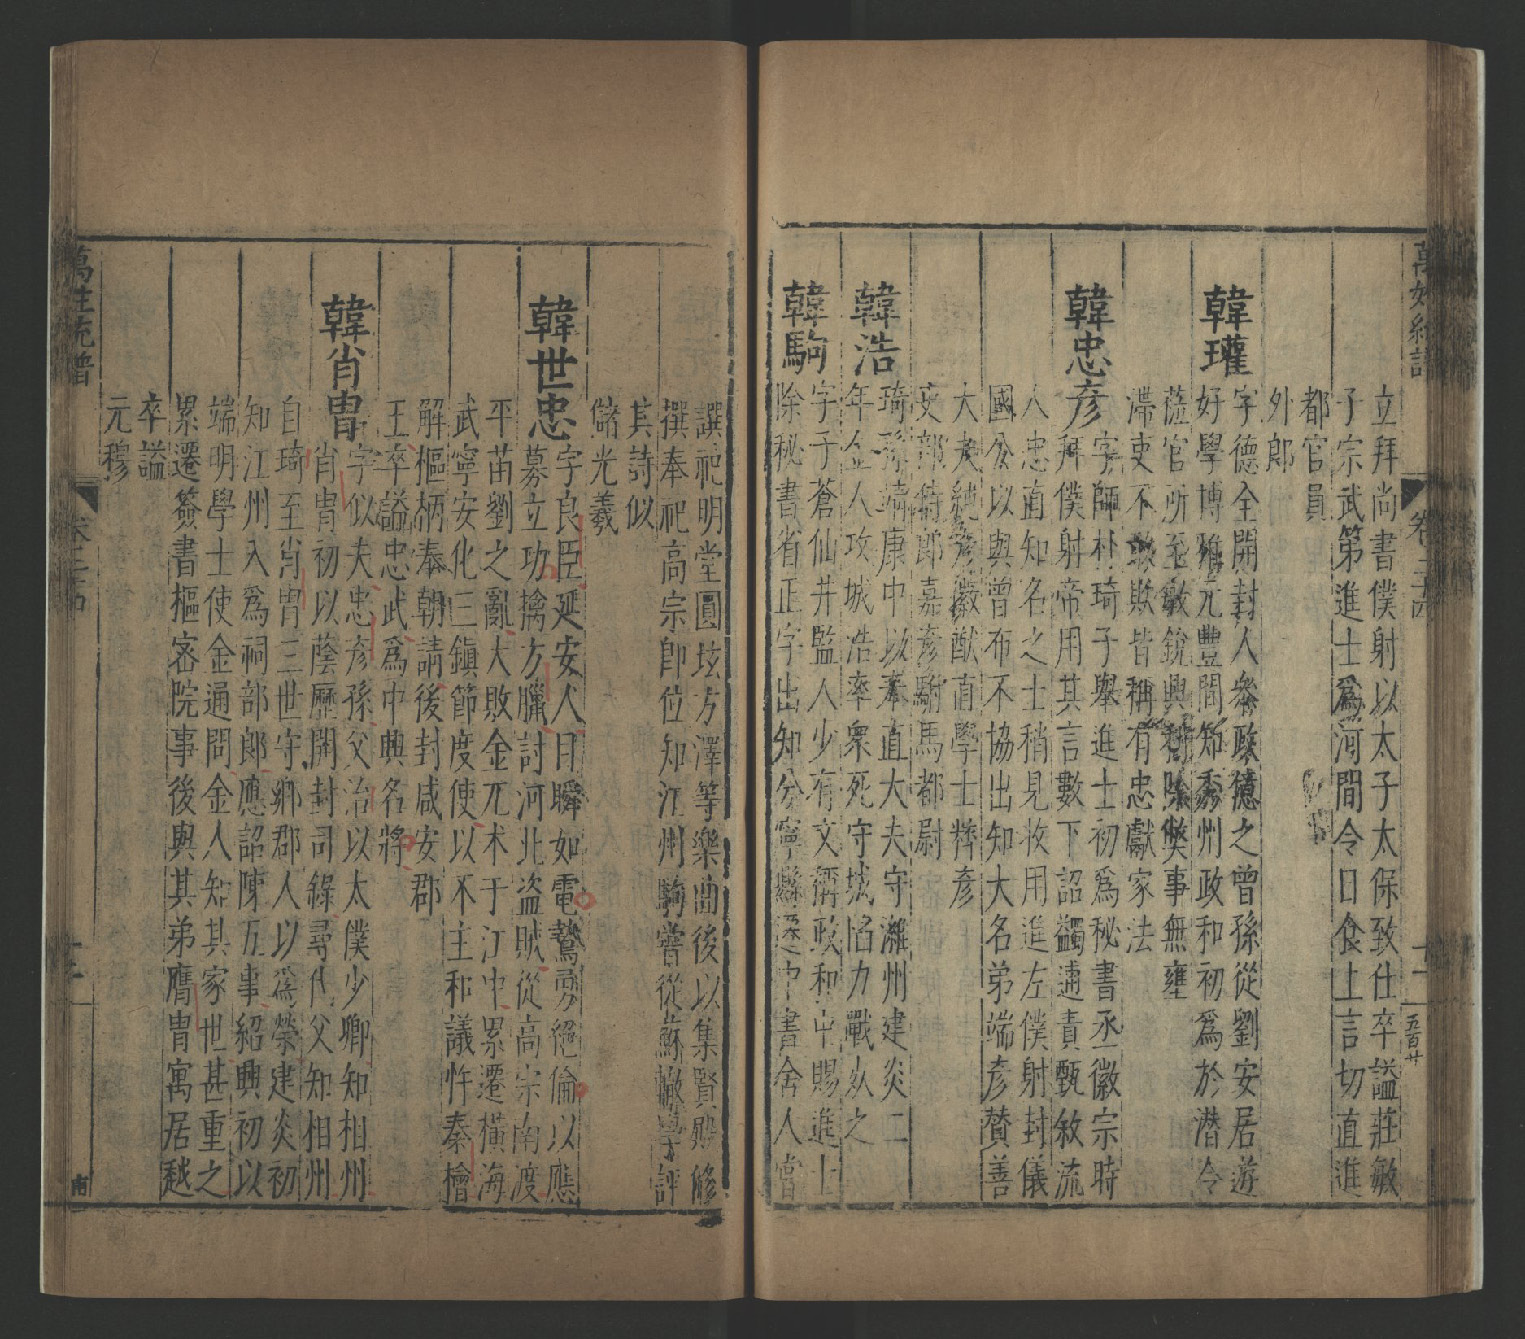 萬姓統譜
卷二十四
立拜尚書僕射以太子太保致仕卒諡莊敏
子宗武第進士爲河間令日食上言切直進
都官員
外郎
韓瓘
字德全開封人參政億之曾孫從劉安居遊
好學博雅元豐間知秀州政和初爲於潛令
蒞官所至敏銳興利除獘事無壅
滯吏不敢欺皆稱有忠獻家法
韓忠彥
字師朴琦子舉進士初爲秘書丞徽宗時
拜僕射帝用其言數下詔蠲逋責甄敘流
人忠直知名之士稍見收用進左僕射封儀
國公以與曾布不協出知大名弟端彥贊善
大夫純彥徽猷直學士粹彥
吏部侍郎嘉彥駙馬都尉
韓浩
琦孫靖康中以奉直大夫守濰州建炎二
年金人攻城浩率衆死守城陷力戰死之
韓駒
字子蒼仙井監人少有文稱政和中賜進士
除秘書省正字出知分寧縣遷中書舍人嘗
譔祀明堂圓垓方澤等樂曲後以集賢殿修
撰奉祀高宗卽位知江州駒嘗從蘇轍學評
其詩似
儲光羲
韓世忠
字良臣延安人目瞬如電鷙勇絕倫以應
募立功擒方臘討河北盜賊從高宗南渡
平苗劉之亂大敗金兀术于江中累遷橫海
武寧安化三鎭節度使以不主和議忤秦檜
解樞柄奉朝請後封咸安郡
王卒諡忠武爲中興名將
韓肖冑
字似夫忠彥孫父治以太僕少卿知相州
肖冑初以蔭歷開封司錄尋代父知相州
自琦至肖冑三世守鄉郡人以爲榮建炎初
知江州入爲祠部郎應詔陳五事紹興初以
端明學士使金通問金人知其家世甚重之
累遷簽書樞密院事後與其弟膺冑寓居越
卒諡
元穆
萬姓統譜